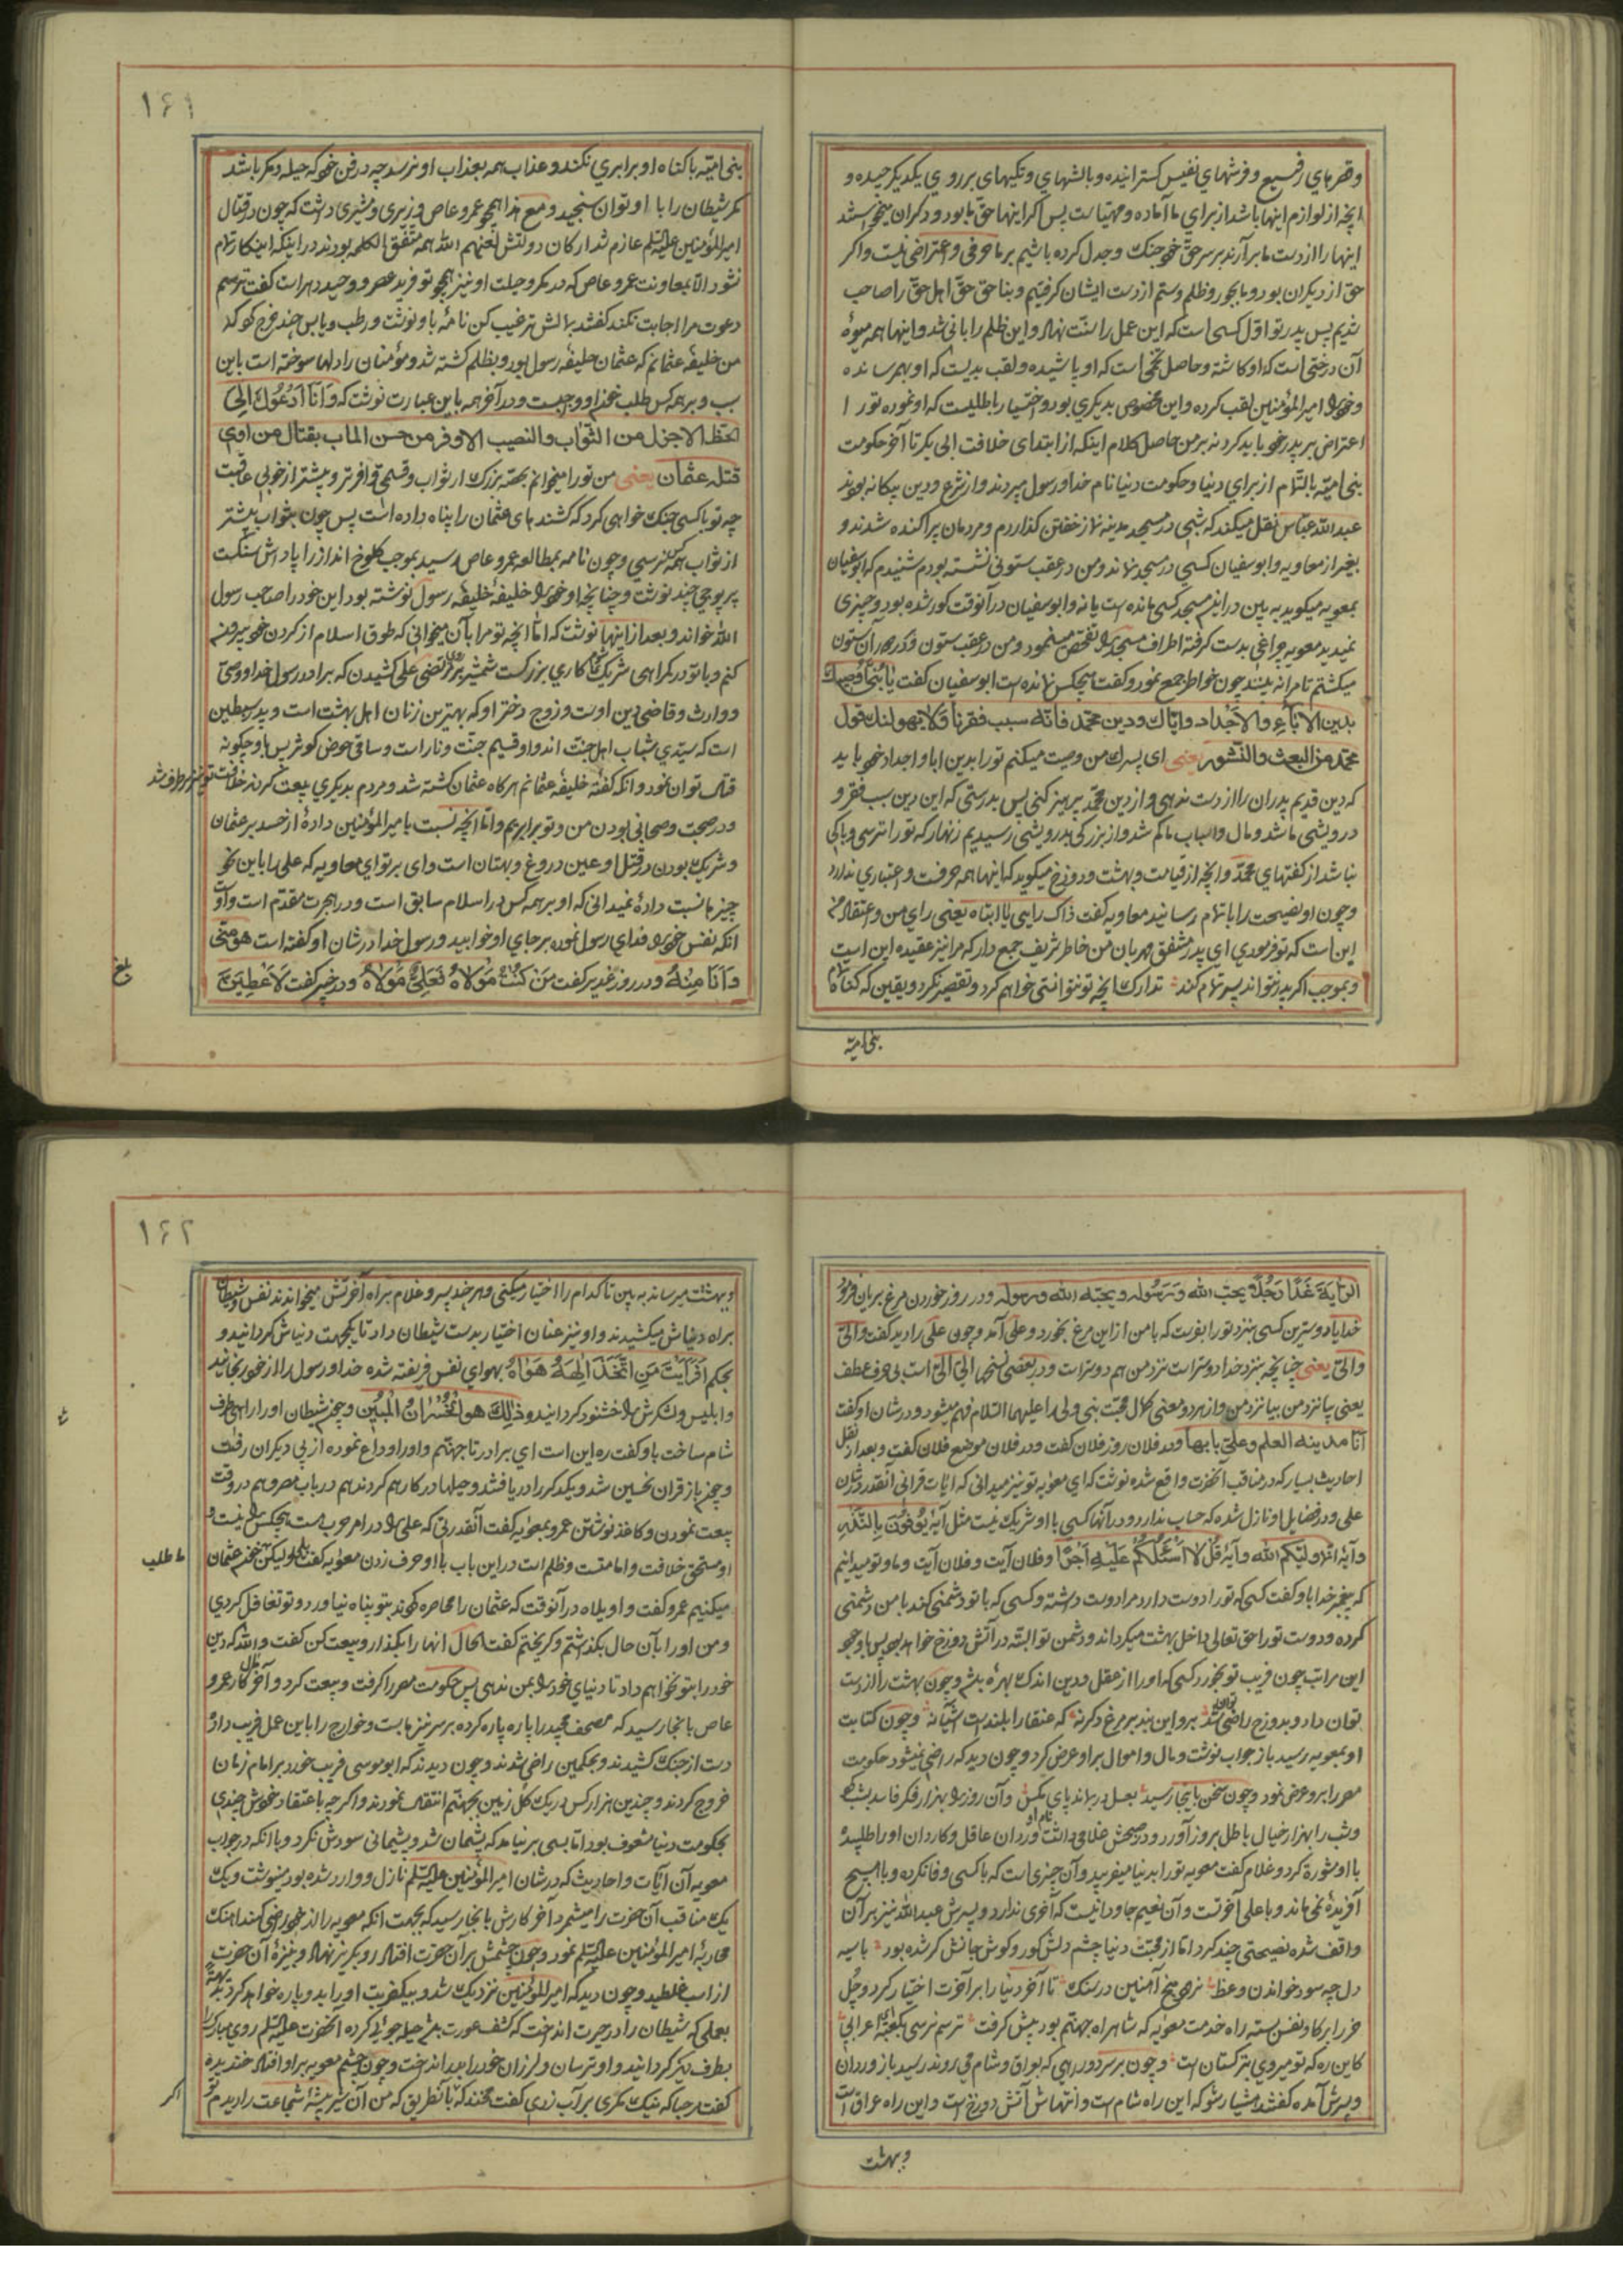 وقصرهای رفیع و فرشهای نفیس کسترانیده و بالشهای و تکیهای بر روی یکدیکر چیده و
انچه از لوازم اینها باشد از برای ما آماده و مهیّاست پس اکر اینها حقّ ما بود و دکران میخواستند
اینها را از دست ما برآرند بر سر حقّ خود جنک و جدل کرده باشیم بر ما حرفی و اعتراضی نیست و اکر
حق از دیکران بود و ما بجور و ظلم و ستم از دست ایشان کرفتیم و بناحق حقّ اهل حقّ را صاحب
شدیم پس پدر تو اوّل کسی است که این عمل را سنّت نهاد و این ظلم را بانی شد و اینها همه میوهٔ
آن درختی است که او کاشته و حاصل تخمی است که او پاشیده و لقب بدیست که او بهم رسانده
و خود را امیرالمؤمنین لقب کرده و این مخصوص بدیکری بود و اختیار باطلیست که او نموده تو را
اعتراض بر پدر خود باید کرد نه بر من حاصل کلام اینکه از ابتدای خلافت ابی بکر تا آخر حکومت
بنی امیّه بالتّمام از برای دنیا و حکومت دنیا نام خدا و رسول میبردند و از شرع و دین بیکانه بودند
عبدالله عبّاس نقل میکند که شبی در مسجد مدینه نماز خفتن کذاردم و مردمان پراکنده شدند و
بغیر از معاویه و ابوسفیان کسی در مسجد نماند و من در عقب ستونی نشسته بودم شنیدم که ابوسفیان
بمعویه میکوید به بین در این مسجد کسی مانده است یا نه و ابوسفیان در آنوقت کور شده بود و چیزی
نمیدید معویه چراغی بدست کرفته اطراف مسجد را تفحّص مینمود و من در عقب ستون و در دور آن ستون
میکشتم تا مرا نه بیند چون خواطر جمع نمود و کفت هیچکس نمانده است ابوسفیان کفت یا بُنَیَّ اُوصیک
بدین الآباء والاجداد وایّاک ودین محمّد فانّه سبب فقرنا ولا یهولنک قول
محمّد من البعث والنّشور یعنی ای پسرک من وصیت میکنم تو را بدین ابا و اجداد خود باید
که دین قدیم پدران را از دست ندهی و از دین محمّد پرهیز کنی پس بدرستی که این دین سبب فقر و
درویشی ما شد و مال و اسباب ما کم شد و از بزرکی بدرویشی رسیدیم زنهار که تو را ترسی و باکی
نباشد از کفتهای محمّد و انچه از قیامت و بهشت و دوزخ میکوید که اینها همه حرفست و اعتباری ندارد
و چون او نصیحت را باتمام رسانید معاویه کفت ذاک رایی یا ابتاه یعنی رای من و اعتقاد من
این است که تو فرمودی ای پدر مشفق مهربان من خاطر شریف جمع دار که مرا نیز عقیده این است
و بموجب اکر پدر نتواند پسر تمام کند تدارک انچه تو نتوانستی خواهم کرد و تقصیر نکرد و یقین که کناه تمام
بنی امیّه
۱۶۱
بنی امیّه با کناه او برابری نکند و عذاب همه بعذاب او نرسد چه در فن خود که حیله و مکر باشد
مکر شیطان را با او توان سنجید و مع هذا همچو عمرو عاص وزیری و مشیری داشت که چون در قتال
امیرالمؤمنین علیه السّلم عازم شد ارکان دولتش لعنهم الله همه متّفق الکلمه بودند در اینکه اینکار تمام
نشود الّا بمعاونت عمرو عاص که در مکر و حیلت او نیز همچو تو فرید عصر و وحید دهر است کفت ترسم
دعوت مرا اجابت نکند کفتند بمالش ترغیب کن نامهٔ باو نوشت و رطب و یابس چند درج کرد که
من خلیفهٔ عثمانم که عثمان خلیفهٔ رسول بود و بظلم کشته شد و مؤمنان را دلها سوخته است باین
سبب و بر همه کس طلب خون او واجبست و در آخر همه باین عبارت نوشت که وَاَنَا اَدْعُوکَ اِلَی
الحظّ الاجزل من الثّواب والنصیب الاوفر من حسن المآب بقتال من اوی
قتله عثمان یعنی من تو را میخوانم بحصّهٔ بزرک از ثواب و قسمی وافرتر و بیشتر از خوبی عاقبت
چه تو با کسی جنک خواهی کرد که کشندهای عثمان را پناه داده است پس چون بثواب بیشتر
از ثواب همه کس رسی و چون نامه بمطالعه عمرو عاص رسید بموجب کلوخ انداز را پاداش سنکست
پر پوچی چند نوشت و چنانچه او خود را خلیفهٔ خلیفهٔ رسول نوشته بود این خود را صاحب رسول
الله خواند و بعد از اینها نوشت که امّا انچه تو مرا بآن میخوانی که طوق اسلام از کردن خود بیرون
کنم و با تو در کمراهی شریک شوم کاری بزرکست شمشیر بر روی مرتضی علی کشیدن که برادر رسول خدا و وصیّ
و وارث و قاضی دین اوست و زوج دختر او که بهترین زنان اهل بهشت است و پدر سبطین
است که سیّدی شباب اهل جنّت اند و او قسیم جنّت و نار است و ساقی حوض کوثر پس با او چکونه
قتال توان نمود و انکه کفتهٔ خلیفهٔ عثمانم هرکاه عثمان کشته شد و مردم بدیکری بیعت کردند خلافت تو نیز برطرف شد
و در صحبت و صحابی بودن من و تو برابریم و امّا انچه نسبت بامیرالمؤمنین دادهٔ از حسد بر عثمان
و شریک بودن در قتل او عین دروغ و بهتان است وای بر تو ای معاویه که علی را باین نحو
چیزها نسبت دادهٔ نمیدانی که او بر همه کس در اسلام سابق است و در هجرت مقدّم است و او آن
انکه نفس خود را فدای رسول نموده بر جای او خوابید و رسول خدا در شان او کفته است هو منّی
وَاَنَا مِنْهُ و در روز غدیر کفت مَنْ کُنْتُ مَوْلاهُ فَعَلِیٌّ مَوْلاهُ و در خیبر کفت لَاُعْطِیَنَّ
بلغ
الرّایَةَ غَدًا رَجُلًا یحبّ الله وَرَسُوله ویحبّه الله ورسوله و در روز خوردن مرغ بریان فرمود
خدایا دوسترین کسی بنزد تو را بفرست که با من از این مرغ بخورد و علی آمد و چون علی را دید کفت والیّ
والیّ یعنی چنانچه بنزد خدا دوستر است نزد من هم دوستر است و در بعضی نسخها الیّ الیّ است بی حرف عطف
یعنی بیا نزد من بیا نزد من و از هر دو معنی کمال محبّت نبی و ولی را علیهما السّلام فهم میشود و در شان او کفت
اَنَا مدینة العلم وعلیّ بابها و در فلان روز فلان کفت و در فلان موضع فلان کفت و بعد از نقل
احادیث بسیار که در مناقب آنحضرت واقع شده نوشت که ای معویه تو نیز میدانی که ایات قرانی آنقدر در شان
علی و در فضایل او نازل شده که حساب ندارد و در آنها کسی با او شریک نیست مثل آیهٔ یُوفُونَ بِالنَّذْرِ
و آیهٔ انّما ولیّکم الله و آیهٔ قُلْ لا اَسْئَلُکُمْ عَلَیْهِ اَجْرًا و فلان آیت و فلان آیت و ما و تو میدانیم
که پیغمبر خدا باو کفت کسی که تو را دوست دارد مرا دوست داشته و کسی که با تو دشمنی کند با من دشمنی
کرده و دوست تو را حق تعالی داخل بهشت میکرداند و دشمن تو البتّه در آتش دوزخ خواهد بود پس با وجود
این مراتب چون فریب تو بخورد کسی که او را از عقل و دین اندک بهره باشد و چون بهشت را از دست
توان داد و بدوزخ راضی توان شد برو این بند بر مرغ دکر نه که عنقا را بلندست آشیانه و چون کتابت
او بمعویه رسید باز جواب نوشت و مال و اموال بر او عرض کرد و چون دید که راضی نمیشود حکومت
مصر را بر او عرض نمود و چون سخن باینجا رسید بعسل درماند پای مکس و آن روز را بهزار فکر فاسد بشب کرد
و شب را بهزار خیال باطل بروز آورد و در صبحش غلامی داشت نام او وردان عاقل و کاردان او را طلبیده
با او مشورة کرد و غلام کفت معویه تو را بدنیا میفریبد و آن چیزی است که با کسی وفا نکرده و با هیچ
آفریدهٔ نمی ماند و با علی آخرتست و آن نعیم جاودانیست که آخری ندارد و پسرش عبدالله نیز بر آن
واقف شده نصیحتی چند کرد امّا از محبّت دنیا چشم دلش کور و کوش جانش کر شده بود با سیه
دل چه سود خواندن وعظ نرود میخ آهنین در سنک تا آخر دنیا را بر آخرت اختیار کرد و جُل
خر را بر کاو نفس بسته راه خدمت معویه که شاهراه جهنّم بود پیش کرفت ترسم نرسی بکعبه ای اعرابی
کاین ره که تو میروی بترکستان است و چون بر سر دو راهی که بعراق و شام می روند رسید باز وردان
و پسرش آمده کفتند هشیار شو که این راه شام است و انتهاش آتش دوزخ است و این راه عراق است
و بهشت
۱۶۲
و بهشت میرساند به بین تا کدام را اختیار میکنی و هر چند پسر و غلام براه آخرتش میخواندند نفس و شیطان
براه دنیاش میکشیدند و او نیز عنان اختیار بدست شیطان داد تا یکجهت دنیاش کردانید و
بحکم اَفَرَاَیْتَ مَنِ اتَّخَذَ اِلٰهَهُ هَوٰاهُ بهوای نفس فریفته شده خدا و رسول را از خود رنجانید
و ابلیس و لشکرش را خشنود کردانید و ذٰلِکَ هو الْخُسْرٰانُ الْمُبین و چون شیطان او را راهی طرف
شام ساخت باو کفت ره این است ای برادر تا جهنّم و او را وداع نموده از پی دیکران رفت
و چون باز قران نحسین شد و یکدکر را دریافتند و حیلها در کار هم کردند هم در باب مصر و هم در وقت
بیعت نمودن و کاغذ نوشتن عمرو بمعویه کفت آنقدرتی که علی را در امر حرب هست هیچکس را نیست و
او مستحق خلافت و امامتست و ظلم است در این باب با او حرف زدن معویه کفت بلی ولیکن خون عثمان
میکنیم عمرو کفت واویلاه در آنوقت که عثمان را محاصره کردند بتو پناه نیاورد و تو تغافل کردی
و من او را بآن حال بکذاشتم و کریختم کفت الحال انها را بکذار و بیعت کن کفت والله که دین
خود را بتو نخواهم داد تا دنیای خود را بمن ندهی پس حکومت مصر را کرفت و بیعت کرد و آخر کار عمرو
عاص بانجا رسید که مصحف مجید را پاره پاره کرده بر سر نیزها بست و خوارج را باین عمل فریب داد
دست از جنک کشیدند و بحکمین راضی شدند و چون دیدند که ابوموسی فریب خورد بر امام زمان
خروج کردند و چندین هزار کس در یک کل زمین بجهنّم انتقال نمودند و اکر چه باعتقاد خودش چندی
بحکومت دنیا مشعوف بود امّا بسی برنیامد که پشیمان شد و پشیمانی سودش نکرد و با انکه در جواب
معویه آن آیات و احادیث که در شان امیرالمؤمنین علیه السّلم نازل و وارد شده بود مینوشت و یک
یک مناقب آن حضرت را میشمرد آخر کارش بانجا رسید که بجهت انکه معویه را از خود راضی کند اهنک
محاربهٔ امیرالمؤمنین علیه السّلم نمود و چون چشمش بر ان حضرت افتاد رو بکریز نهاد و بنیزهٔ آن حضرت
از اسب غلطید و چون دید که امیرالمؤمنین نزدیک شد و بیکضربت او را بدو پاره خواهد کرد
بعملی که شیطان را در حیرت انداخت که کشف عورت باشد حیله جوئی کرده انحضرت علیه السّلم روی مبارک را
بطرف دیکر کردانید و او ترسان و لرزان خود را بدر انداخت و چون چشم معویه بر او افتاد خندیده
کفت مرحبا که نیک مکری بر آب زدی کفت مخند که بآنطریق که من آن شیر بیشهٔ شجاعت را دیدم تو
مطلب
اکر